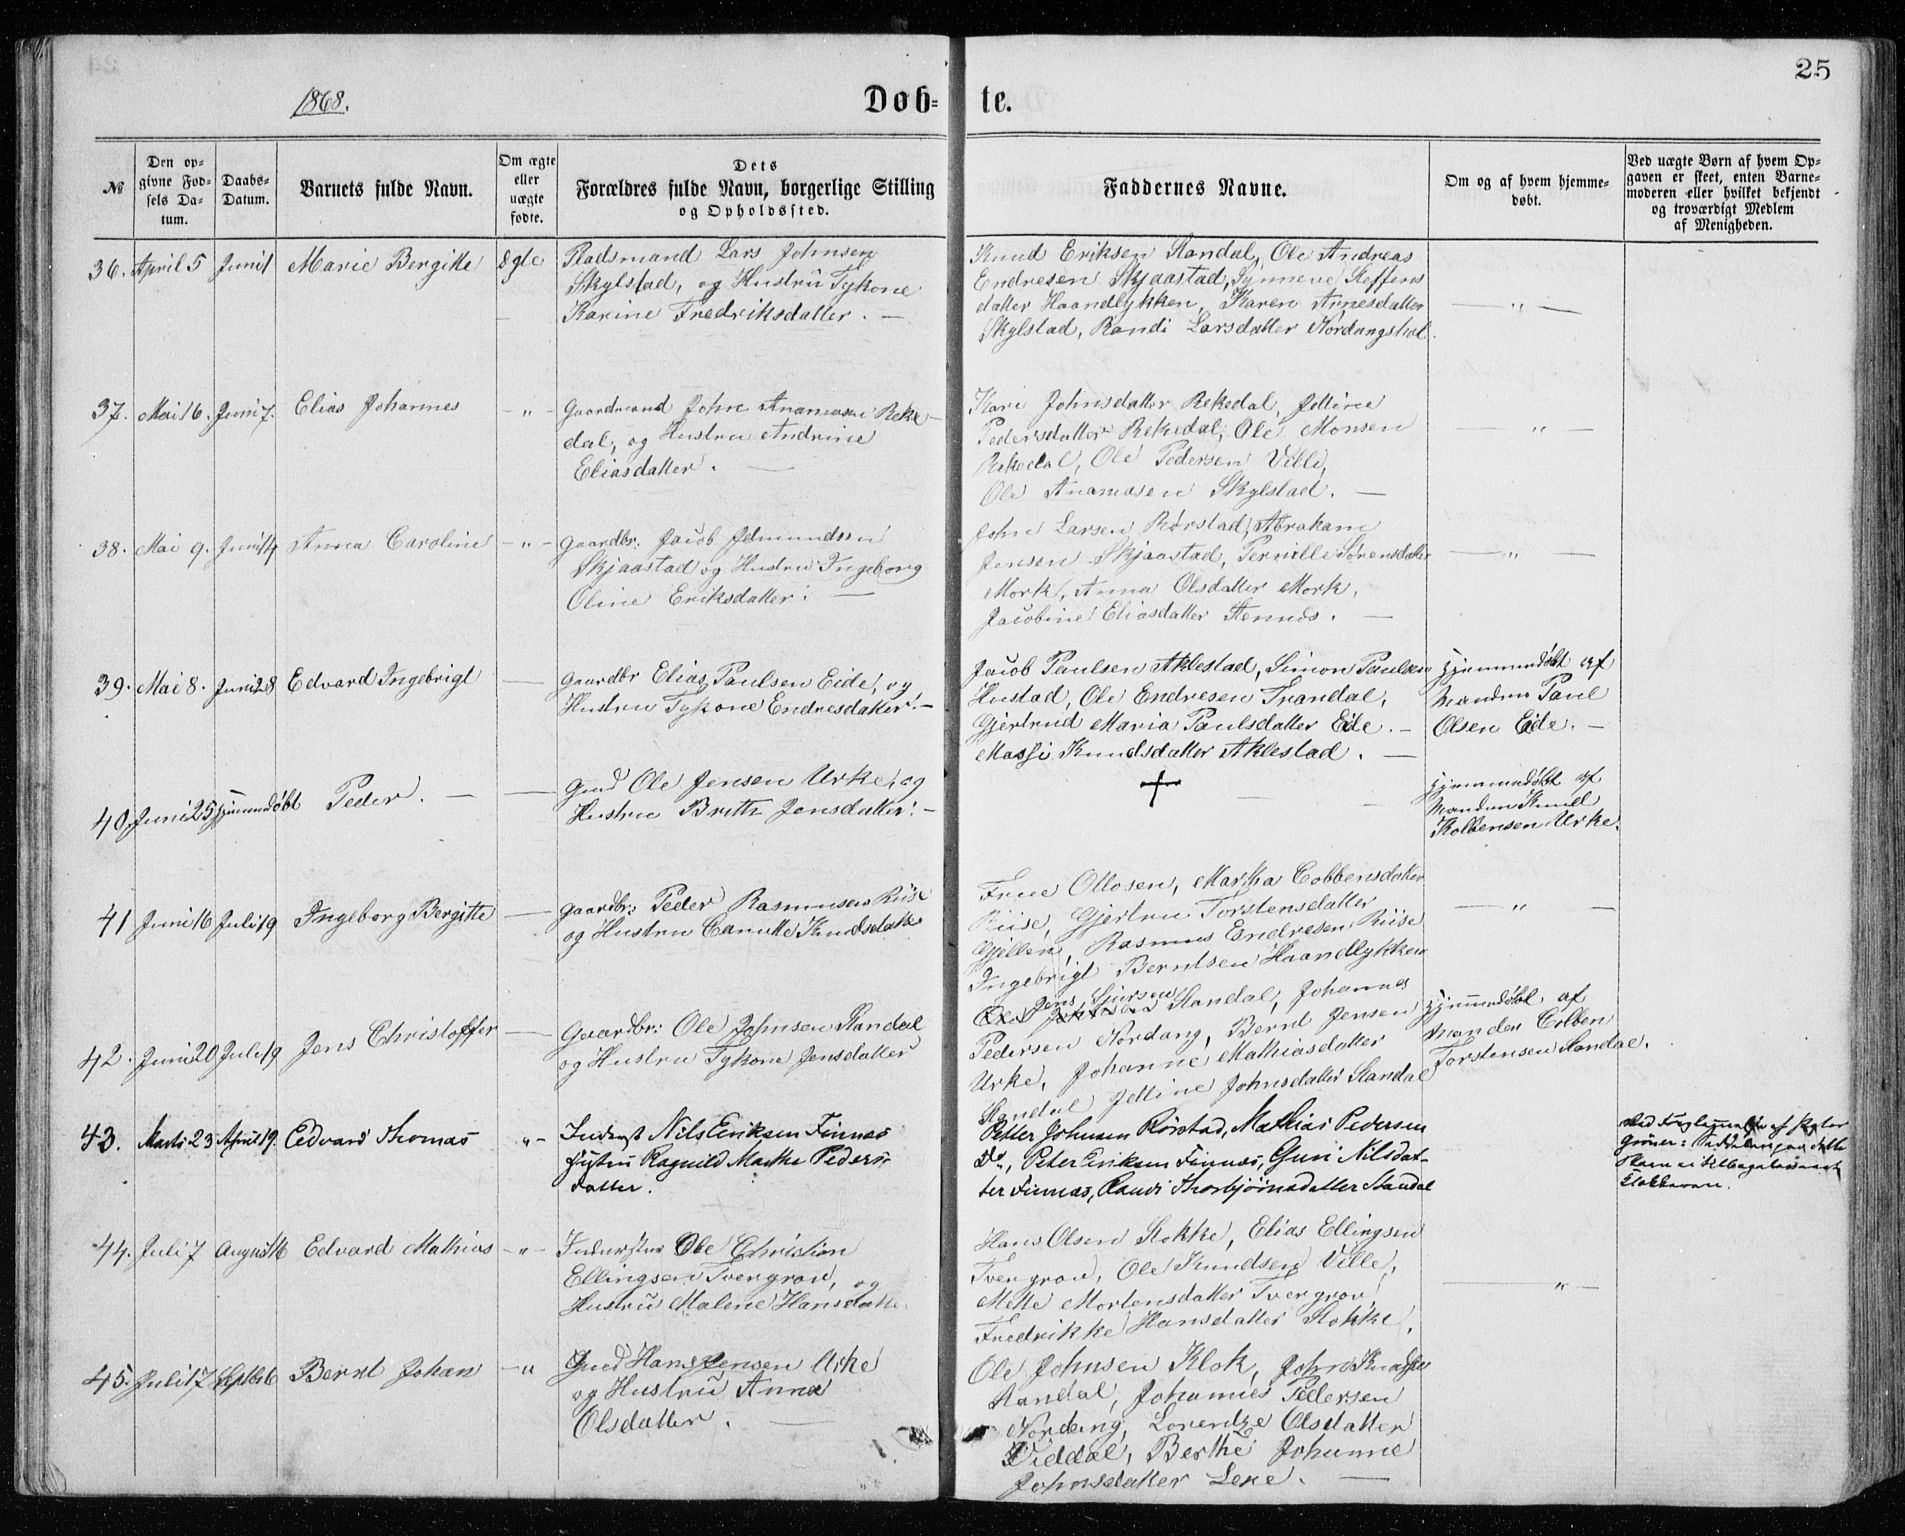 25
1868.
Døb-te.
№
Den opgivne Fødsels Datum.
Daabs-Datum.
Barnets fulde Navn.
Om ægte eller uægte fødte.
Dets Forældres fulde Navn, borgerlige Stilling og Opholdssted.
Faddernes Navne.
Om og af hvem hjemmedøbt.
Ved uægte Børn af hvem Opgaven er skeet, enten Barnemoderen eller hvilket bekjendt og troværdigt Medlem af Menigheden.
36. April 5 Juni 1 Marie Bergitte Ægte
Pladsmand Lars Johnsen
Skylstad, og Hustru Sykone
Karine Fredriksdatter. —
Knud Eriksen Standal, Ole Andreas
Endresen Skjaastad, Synneve Steffens
datter Haandlykken, Karen Arnesdatter
Skylstad, Randi Larsdatter Nordangsdal.
— " —
37. Mai 16. Juni 7. Elias Johannes — " —
Gaardmand John Ananiasen Reke-
dal, og Hustru Andrine
Eliasdatter. —
Kari Johnsdatter Rekedal, Jettine
Pedersdatter Rekedal, Ole Monsen
Rekedal, Ole Pedersen Ville,
Ole Ananiasen Skylstad. —
— " —
38. Mai 9. Juni 14 Anna Caroline — " —
Gaardbr: Jacob Edmundsen
Skjaastad og Hustru Ingeborg
Oline Eriksdatter. —
John Larsen Rørstad, Abraham
Jensen Skjaastad, Pernille Sørensdatter
Mork, Anna Olsdatter Mork,
Jacobine Eliasdatter Stennes. —
— " —
39. Mai 8. Juni 28 Edvard Ingebrigt —
Gaardbr Elias Paulsen Eide, og
Hustru Sykone Endresdatter. —
Jacob Paulsen Aklestad, Simon Paulsen
Hustad, Ole Endresen Trandal,
Gjertrud Maria Paulsdatter Eide. —
Massi Knudsdatter Aklestad. —
Hjemmedøbt af
Manden Paul
Olsen Eide. —
40. Juni 25 Hjemmedøbt Peder. — —
Gmd Ole Jensen Urke, og
Hustru Brithe Jensdatter. —
+
Hjemmedøbt af
Manden Knud
Kolbensen Urke.
41 Juni 16 Juli 19 Ingeborg Bergitte —
Gaardbr: Peder Rasmussen Riise
og Hustru Canutte Knudsdatter
Ottosen, Martha Cobbensdatter
Riise, Gjertru Torstensdatter
Gjellen, Rasmus Endresen Riise
Ingebrigt Berntsen Haandlykken
— " —
42. Juni 20 Juli 19 Jens Christoffer —
Gaardbr: Ole Johnsen Standal
og Hustru Sykone Jensdatter
Jens Sjursen
Standal, Johannes
Pedersen Nordang, Bernt Jensen
Urke, Johanne Mathiasdatter
Standal, Jettine Johnsdatter Standal
Hjemmedøbt af
Manden Colben
Torstensen Standal.
43. Marts 23 April 19. Edvard Thomas " —
Inderst Nils Eriksen Finnes
Hustru Ragnild Martha Peders-
datter.
Petter Johnsen Rørstad, Mathias Pedersen
Do, Peter Eriksen Finnes, Guri Nilsdat-
ter Finnes, Randi Thorbjørnsdatter Standal
44. Juli 7 August 16 Edvard Mathias — " —
Ole Christian
Ellingsen Tvergrov, og
Hustru Malene Hansdatter.
Hans Olsen Stokke, Elias Ellingsen
Tvergrov, Ole Knudsen Ville,
Mette Mortensdatter Tvergrov,
Fredrikke Hansdatter Stokke.
— " —
45. Juli 17 Septbr 6 Bernt Johan — "
Gmd Hans Jensen Urke
og Hustru Anne
Olsdatter. —
Ole Johnsen Klok, John Knudsen
Standal, Johannes Pedersen
Nordang, Lorentze Olsdatter
Viddal, Berthe Johanne
Johnsdatter Lexe. —